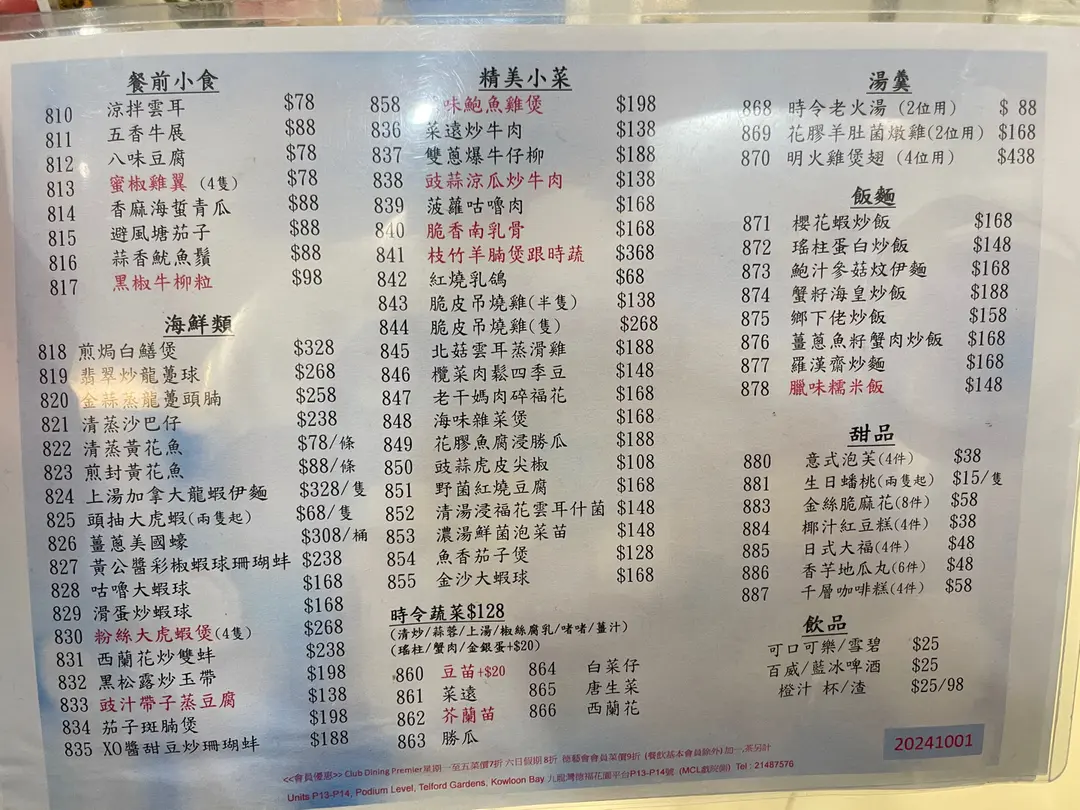 餐前小食
810 涼拌雲耳 $78
811 五香牛展 $88
812 八味豆腐 $78
813 蜜椒雞翼 (4隻) $78
814 香麻海蜇青瓜 $88
815 避風塘茄子 $88
816 蒜香魷魚鬚 $88
817 黑椒牛柳粒 $98
海鮮類
818 煎焗白鱔煲 $328
819 翡翠炒龍躉球 $268
820 金蒜蒸龍躉頭腩 $258
821 清蒸沙巴仔 $238
822 清蒸黃花魚 $78/條
823 煎封黃花魚 $88/條
824 上湯加拿大龍蝦伊麵 $328/隻
825 頭抽大虎蝦(兩隻起) $68/隻
826 薑蔥美國蠔 $308/桶
827 黃公醬彩椒蝦球珊瑚蚌 $238
828 咕嚕大蝦球 $168
829 滑蛋炒蝦球 $168
830 粉絲大虎蝦煲(4隻) $268
831 西蘭花炒雙蚌 $238
832 黑松露炒玉帶 $198
833 豉汁帶子蒸豆腐 $138
834 茄子斑腩煲 $198
835 XO醬甜豆炒珊瑚蚌 $188
精美小菜
858 味鮑魚雞煲 $198
836 菜遠炒牛肉 $138
837 雙蔥爆牛仔柳 $188
838 豉蒜涼瓜炒牛肉 $138
839 菠蘿咕嚕肉 $168
840 脆香南乳骨 $168
841 枝竹羊腩煲跟時蔬 $368
842 紅燒乳鴿 $68
843 脆皮吊燒雞(半隻) $138
844 脆皮吊燒雞(隻) $268
845 北菇雲耳蒸滑雞 $188
846 欖菜肉鬆四季豆 $148
847 老干媽肉碎福花 $168
848 海味雜菜煲 $168
849 花膠魚腐浸勝瓜 $188
850 豉蒜虎皮尖椒 $108
851 野菌紅燒豆腐 $168
852 清湯浸福花雲耳什菌 $148
853 濃湯鮮菌泡菜苗 $148
854 魚香茄子煲 $128
855 金沙大蝦球 $168
時令蔬菜$128
(清炒/蒜蓉/上湯/椒絲腐乳/啫啫/薑汁)
(瑤柱/蟹肉/金銀蛋+$20)
860 豆苗+$20 864 白菜仔
861 菜遠 865 唐生菜
862 芥蘭苗 866 西蘭花
863 勝瓜
湯羹
868 時令老火湯 (2位用) $ 88
869 花膠羊肚菌燉雞(2位用) $168
870 明火雞煲翅 (4位用) $438
飯麵
871 櫻花蝦炒飯 $168
872 瑤柱蛋白炒飯 $148
873 鮑汁參菇炆伊麵 $168
874 蟹籽海皇炒飯 $188
875 鄉下佬炒飯 $158
876 薑蔥魚籽蟹肉炒飯 $168
877 羅漢齋炒麵 $168
878 臘味糯米飯 $148
甜品
880 意式泡芙(4件) $38
881 生日蟠桃(兩隻起) $15/隻
883 金絲脆麻花(8件) $58
884 椰汁紅豆糕(4件) $38
885 日式大福(4件) $48
886 香芋地瓜丸(6件) $48
887 千層咖啡糕(4件) $58
飲品
可口可樂/雪碧 $25
百威/藍冰啤酒 $25
橙汁 杯/渣 $25/98
20241001
<<會員優惠>> Club Dining Premier星期一至五菜價7折 六日假期8折 德藝會會員菜價9折 (餐飲基本會員除外) 加一,茶另計
Units P13-P14, Podium Level, Telford Gardens, Kowloon Bay 九龍灣德福花園平台P13-P14號 (MCL戲院側) Tel : 21487576